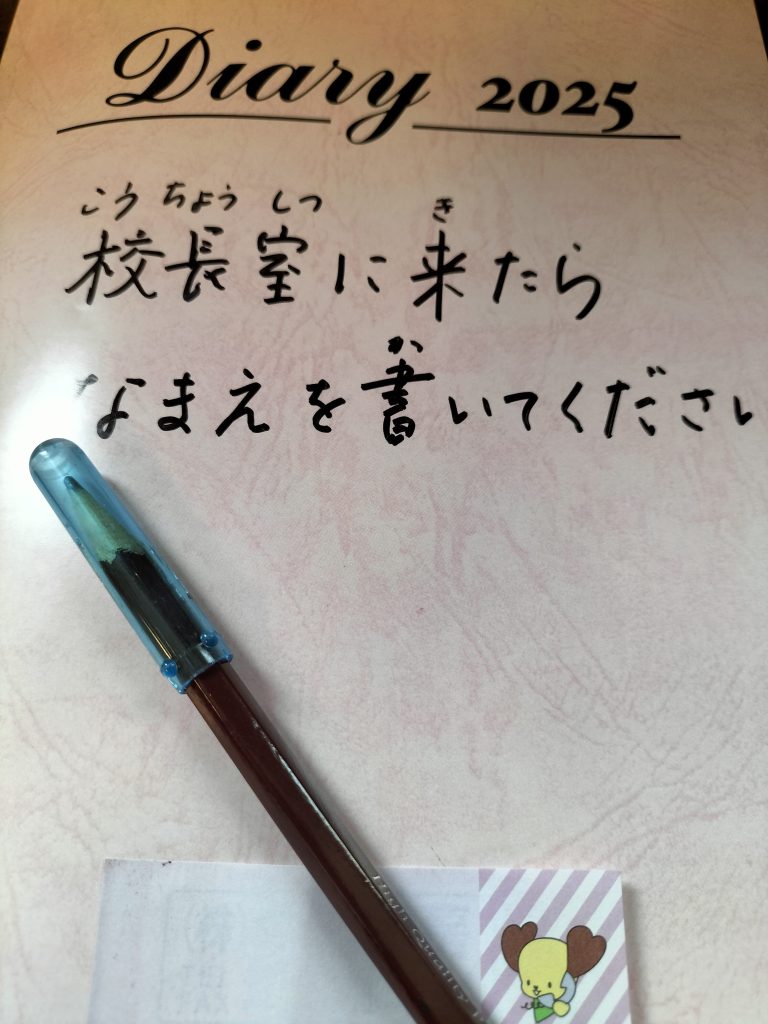 Diary 2025
こうちょうしつ き
校長室に来たら
か
なまえを書いてください
High Quality